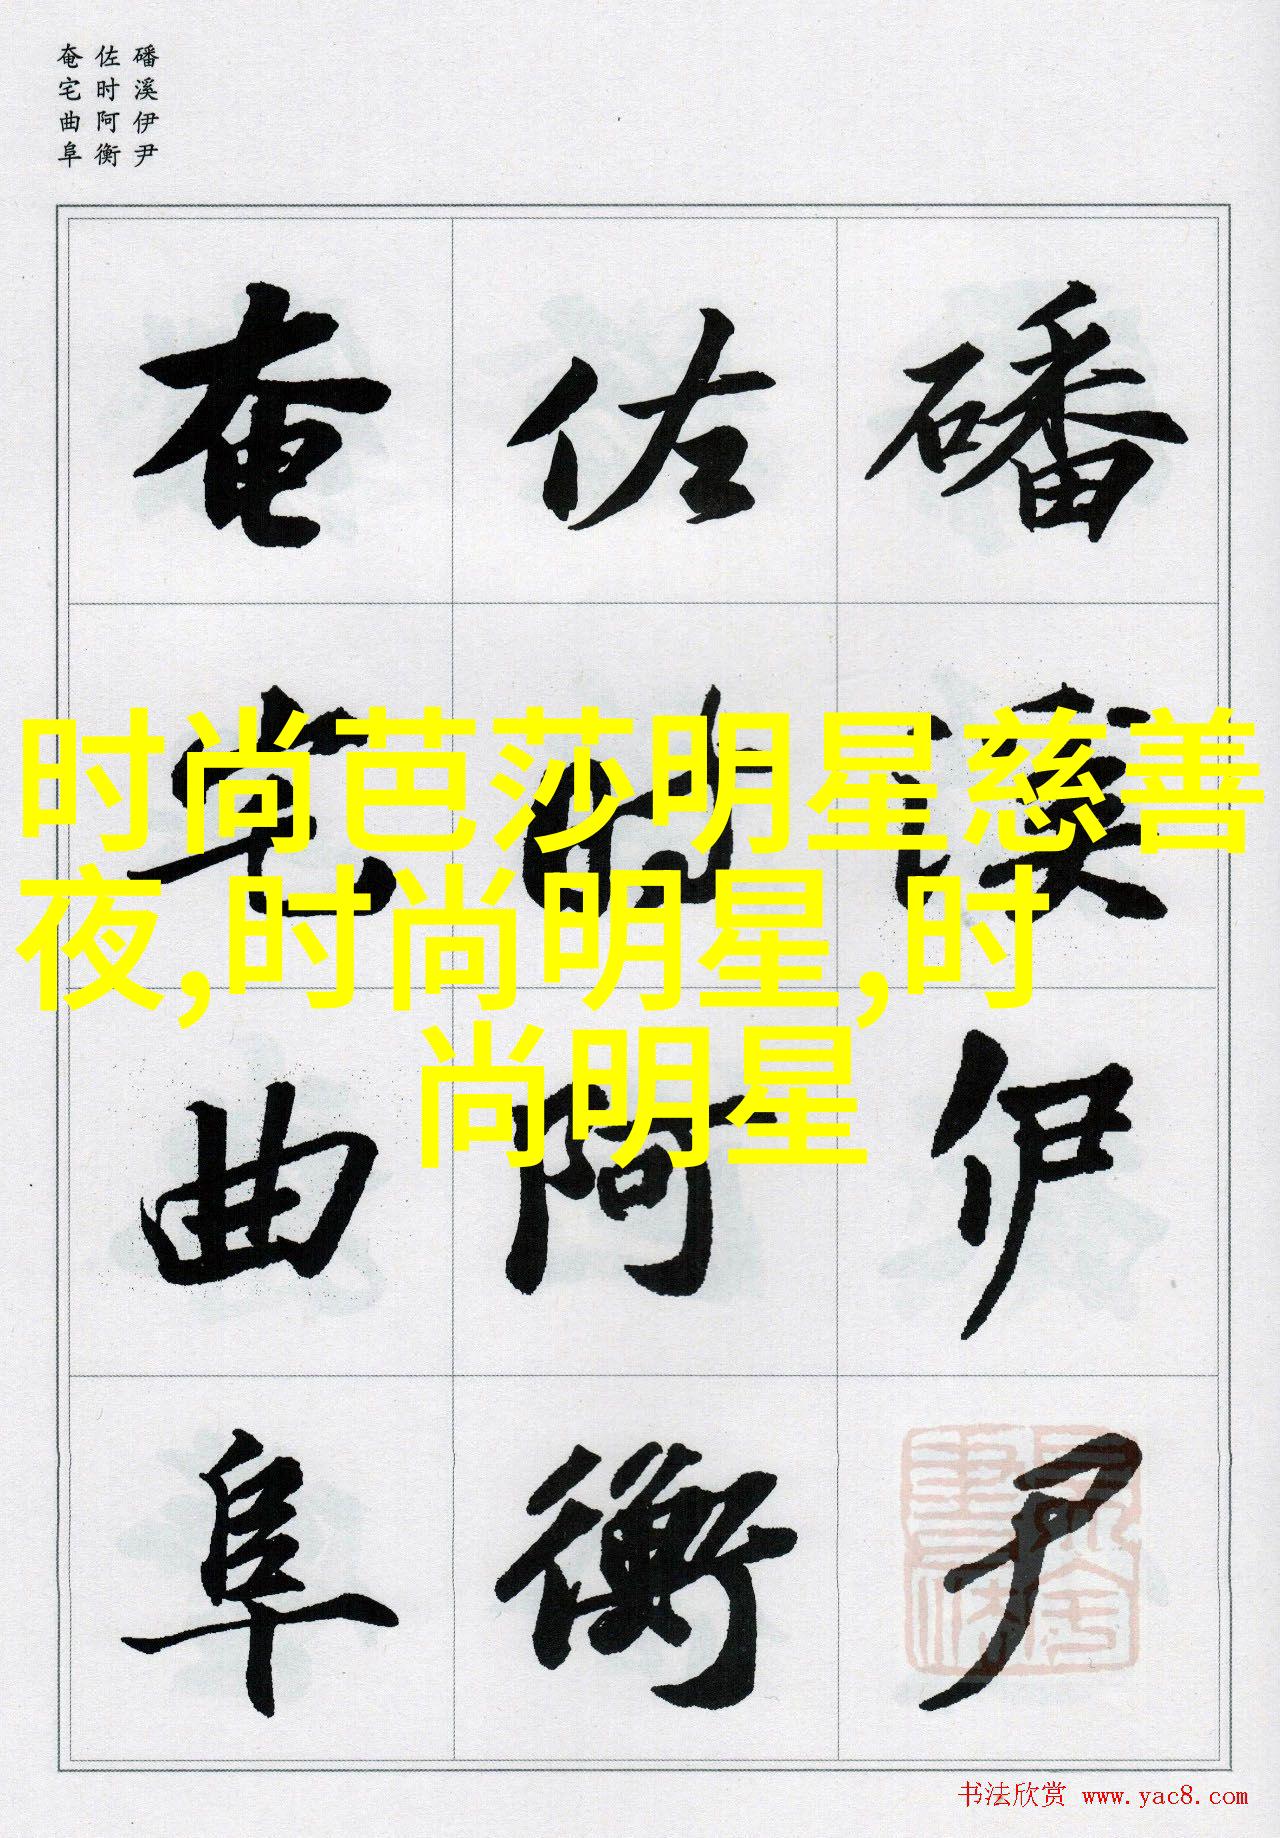 磻溪伊尹
佐时阿衡
奄宅曲阜
磻溪伊尹
佐时阿衡
奄宅曲阜
时尚芭莎明星慈善
夜,时尚明星,时
尚明星
书法欣赏 www.yac8.com